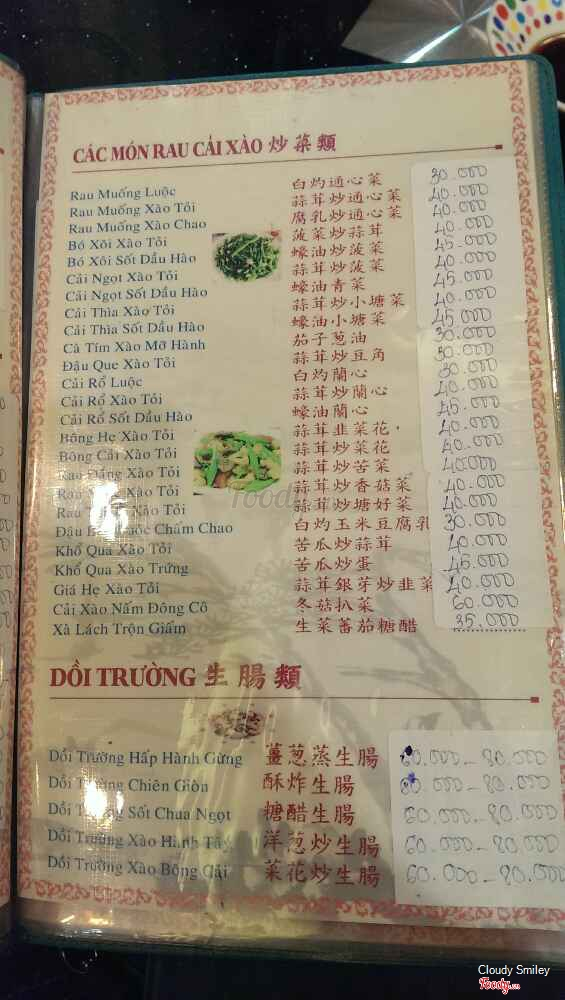 CÁC MÓN RAU CẢI XÀO 炒菜類
Rau Muống Luộc 白灼通心菜 30.000
Rau Muống Xào Tỏi 蒜茸炒通心菜 40.000
Rau Muống Xào Chao 腐乳炒通心菜 40.000
Bó Xôi Xào Tỏi 菠菜炒蒜茸 40.000
Bó Xôi Sốt Dầu Hào 蠔油炒菠菜 45.000
Cải Ngọt Xào Tỏi 蒜茸炒菠菜 40.000
Cải Ngọt Sốt Dầu Hào 蠔油青菜 45.000
Cải Thìa Xào Tỏi 蒜茸炒小塘菜 40.000
Cải Thìa Sốt Dầu Hào 蠔油小塘菜 45.000
Cà Tím Xào Mỡ Hành 茄子葱油 30.000
Đậu Que Xào Tỏi 蒜茸炒豆角 30.000
Cải Rổ Luộc 白灼蘭心 30.000
Cải Rổ Xào Tỏi 蒜茸炒蘭心 40.000
Cải Rổ Sốt Dầu Hào 蠔油蘭心 45.000
Bông Hẹ Xào Tỏi 蒜茸韭菜花 40.000
Bông Cải Xào Tỏi 蒜茸炒菜花 40.000
Rau Đắng Xào Tỏi 蒜茸炒苦菜 40.000
Rau Xào Tỏi 蒜茸炒香菇菜 40.000
Rau Xào Tỏi 蒜茸炒塘好菜 40.000
Đậu Luộc Chấm Chao 白灼玉米豆腐乳 30.000
Khổ Qua Xào Tỏi 苦瓜炒蒜茸 40.000
Khổ Qua Xào Trứng 苦瓜炒蛋 45.000
Giá Hẹ Xào Tỏi 蒜茸銀芽炒韭菜 40.000
Cải Xào Nấm Đông Cô 冬菇扒菜 60.000
Xà Lách Trộn Giấm 生菜蕃茄糖醋 35.000
DỒI TRƯỜNG 生腸類
Dồi Trường Hấp Hành Gừng 薑葱蒸生腸 60.000-80.000
Dồi Trường Chiên Giòn 酥炸生腸 60.000-80.000
Dồi Trường Sốt Chua Ngọt 糖醋生腸 60.000-80.000
Dồi Trường Xào Hành Tây 洋葱炒生腸 60.000-80.000
Dồi Trường Xào Bông Cải 菜花炒生腸 60.000-80.000
Cloudy Smiley
Foody.vn